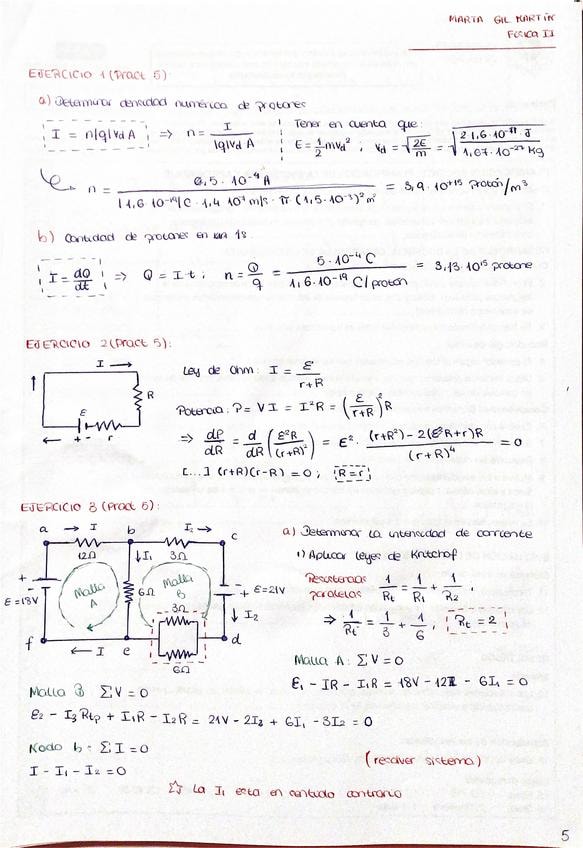 MARTA GIL MARTÍN
FÍSICA II
EJERCICIO 1 (Pract 5):
a) Determinar densidad numérica de protones
I = n|q|Vd A ⇒ n = I / |q|Vd A
Tener en cuenta que:
E = 1/2 mVd² ; Vd = √(2E/m) = √(2·1,6·10⁻¹⁹ J / 1,67·10⁻²⁷ Kg)
n = 6,5·10⁻⁴ A / (|1,6·10⁻¹⁹|C · 1,4·10⁷ m/s · π (1,5·10⁻³)² m²) = 3,9·10⁺¹⁵ protón/m³
b) Cantidad de protones en un 1s.
I = dQ/dt ⇒ Q = I·t ; n = Q/q = 5·10⁻⁴ C / 1,6·10⁻¹⁹ C/protón = 3,13·10¹⁵ protone
EJERCICIO 2 (Pract 5):
I →
R
ε
+ - r
Ley de Ohm: I = ε / r+R
Potencia: P = VI = I²R = (ε / r+R)² R
⇒ dP/dR = d/dR (ε²R / (r+R)²) = ε² · (r+R²) - 2(ε²R+r)R / (r+R)⁴ = 0
[...] (r+R)(r-R) = 0 ; R = r
EJERCICIO 3 (Pract 5):
a → I b I₂ → c
12Ω ↓I₁ 3Ω
Malla A
6Ω
Malla B
ε = 18V
ε = 21V
↓ I₂
3Ω
f ← I e d
6Ω
a) Determinar la intensidad de corriente
1) Aplicar leyes de Kirchof
Resistencias paralelas 1/Rt = 1/R₁ + 1/R₂ .
⇒ 1/Rt = 1/3 + 1/6 , Rt = 2
Malla A: ΣV = 0
ε₁ - IR - I₁R = 18V - 12I - 6I₁ = 0
Malla B: ΣV = 0
ε₂ - I₂Rtp + I₁R - I₂R = 21V - 2I₂ + 6I₁ - 3I₂ = 0
Nodo b: ΣI = 0
I - I₁ - I₂ = 0
(resolver sistema)
☆ La I₁ esta en sentido contrario
5